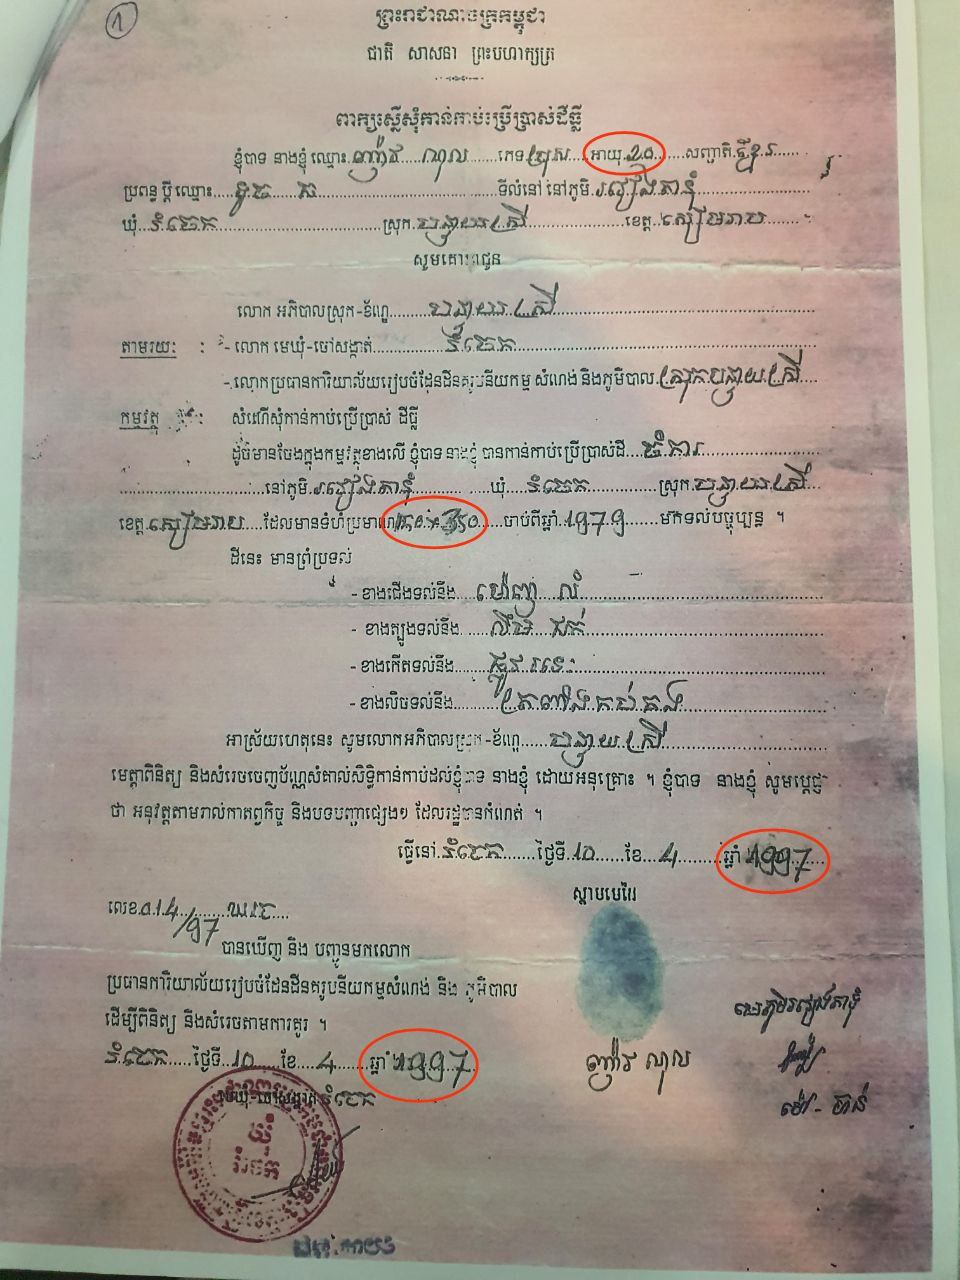 1
ព្រះរាជាណាចក្រកម្ពុជា
ជាតិ សាសនា ព្រះមហាក្សត្រ
ពាក្យស្នើសុំកាន់កាប់ប្រើប្រាស់ដីធ្លី
ខ្ញុំបាទ នាងខ្ញុំ ឈ្មោះ ញ៉ាវ ណុល ភេទ ប្រុស អាយុ សញ្ជាតិ ខ្មែរ
ប្រពន្ធ ប្តី ឈ្មោះ ទូច ទីលំនៅ នៅភូមិ
ឃុំ រំចេក ស្រុក បន្ទាយស្រី ខេត្ត សៀមរាប
សូមគោរពជូន
លោក អភិបាលស្រុក-ខ័ណ្ឌ បន្ទាយស្រី
តាមរយៈ : - លោក មេឃុំ-ចៅសង្កាត់ រំចេក
- លោកប្រធានការិយាល័យរៀបចំដែនដីនគរូបនីយកម្ម សំណង់ និងភូមិបាល ស្រុកបន្ទាយស្រី
កម្មវត្ថុ : សំណើសុំកាន់កាប់ប្រើប្រាស់ ដីធ្លី
ដូចមានចែងក្នុងកម្មវត្ថុខាងលើ ខ្ញុំបាទ នាងខ្ញុំ បានកាន់កាប់ប្រើប្រាស់ដី ចំការ
នៅភូមិ ឃុំ រំចេក ស្រុក បន្ទាយស្រី
ខេត្ត សៀមរាប ដែលមានទំហំប្រមាណ ចាប់ពីឆ្នាំ 1979 មកទល់បច្ចុប្បន្ន ។
ដីនេះ មានព្រំប្រទល់
- ខាងជើងទល់នឹង
- ខាងត្បូងទល់នឹង
- ខាងកើតទល់នឹង ផ្លូវរទេះ
- ខាងលិចទល់នឹង
អាស្រ័យហេតុនេះ សូមលោកអភិបាលស្រុក-ខ័ណ្ឌ បន្ទាយស្រី
មេត្តាពិនិត្យ និងសំរេចចេញប័ណ្ណសំគាល់សិទ្ធិកាន់កាប់ដល់ខ្ញុំបាទ នាងខ្ញុំ ដោយអនុគ្រោះ ។ ខ្ញុំបាទ នាងខ្ញុំ សូមប្តេជ្ញា
ថា អនុវត្តតាមរាល់កាតព្វកិច្ច និងបទបញ្ជាផ្សេងៗ ដែលរដ្ឋបានកំណត់ ។
ធ្វើនៅ រំចេក ថ្ងៃទី 10 ខែ 4 ឆ្នាំ 1997
ស្តាមមេដៃ
លេខ 014/97 ឃរច
បានឃើញ និង បញ្ជូនមកលោក
ប្រធានការិយាល័យរៀបចំដែនដីនគរូបនីយកម្មសំណង់ និង ភូមិបាល
ដើម្បីពិនិត្យ និងសំរេចតាមការគួរ ។
រំចេក ថ្ងៃទី 10 ខែ 4 ឆ្នាំ 1997
មេឃុំ-ចៅសង្កាត់ រំចេក
ញ៉ាវ ណុល
ឃុំ
រំចេក